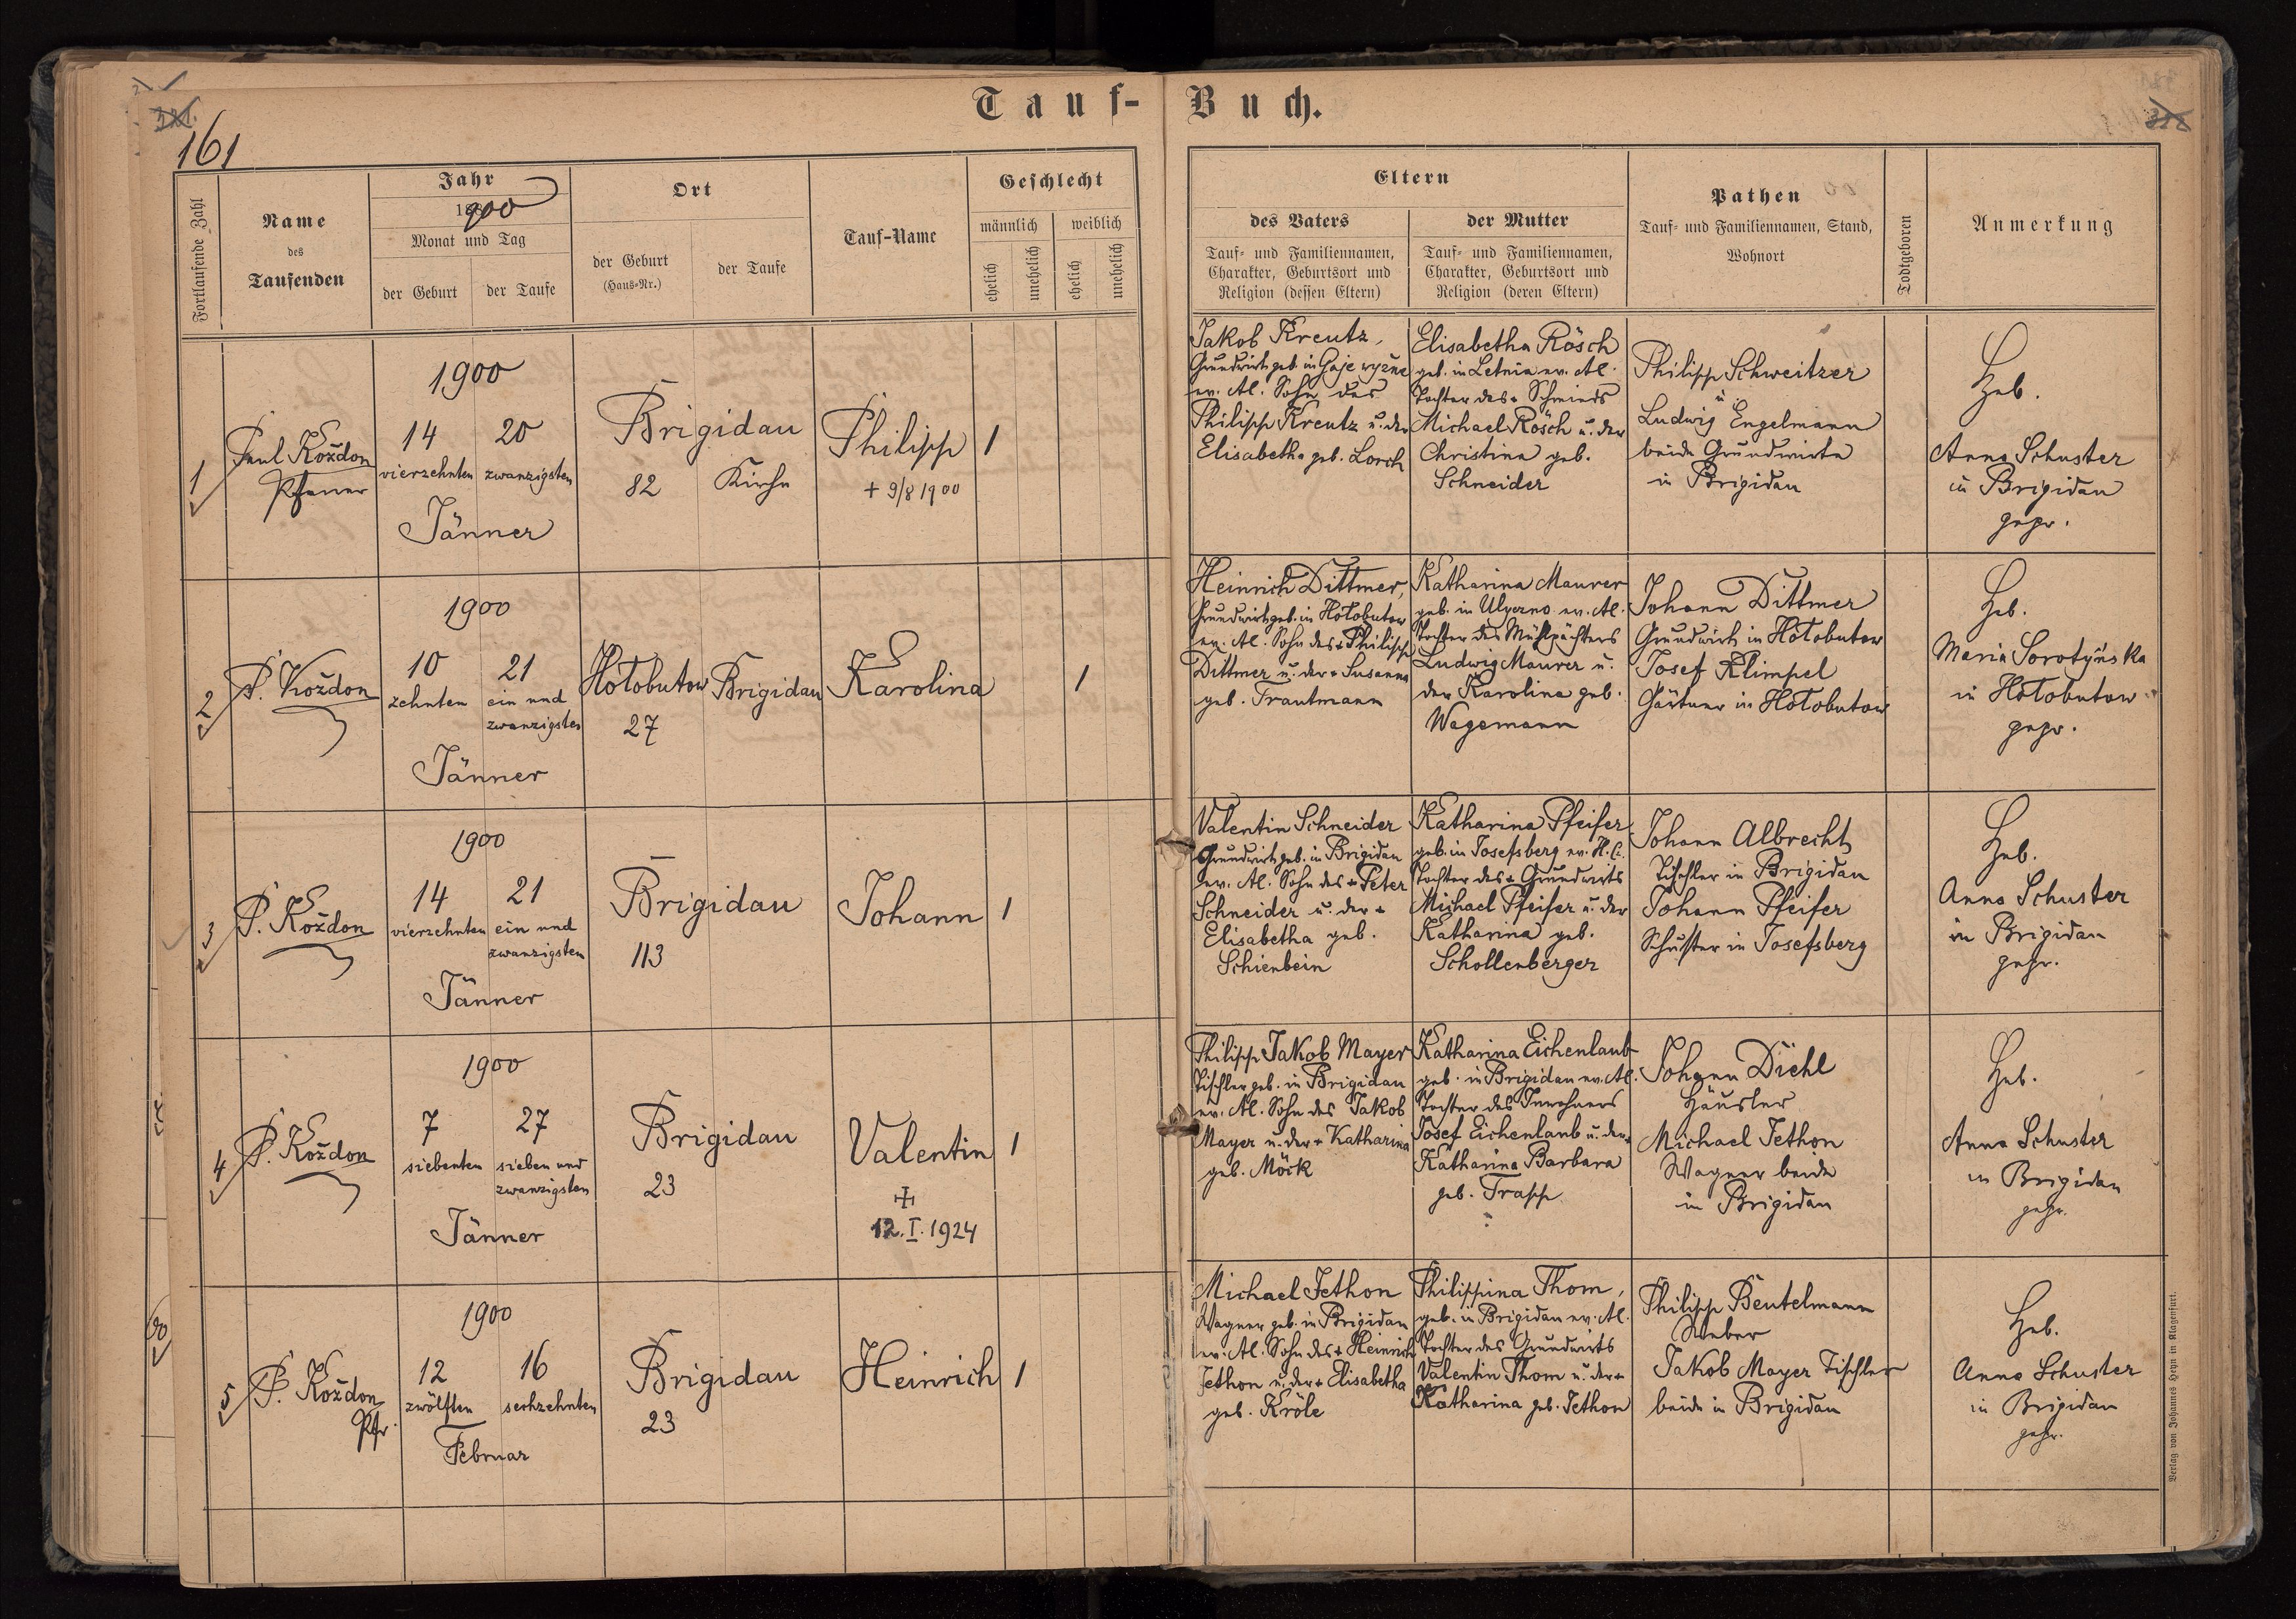 Tauf-Buch.
161
Fortlaufende Zahl
Name
des
Taufenden
Jahr
1900
Monat und Tag
der Geburt
der Taufe
Ort
der Geburt
(Haus-Nr.)
der Taufe
Tauf-Name
Geschlecht
männlich
weiblich
ehelich
unehelich
ehelich
unehelich
Eltern
des Vaters
Tauf- und Familiennamen,
Charakter, Geburtsort und
Religion (dessen Eltern)
der Mutter
Tauf- und Familiennamen,
Charakter, Geburtsort und
Religion (deren Eltern)
Pathen
Tauf- und Familiennamen, Stand,
Wohnort
Todtgeboren
Anmerkung
1
Paul Kożdon
Pfarrer
1900
14
vierzehnten
20
zwanzigsten
Jänner
Brigidau
82
Kirche
Philipp
+ 9/8 1900
1
Jakob Kreutz,
Grundwirt geb. in Gaje wyżne
ev. Al. Sohn des
Philipp Kreutz u. der
Elisabetha geb. Lorch
Elisabetha Rösch
geb. in Letnia ev. Al.
Tochter des + Schmieds
Michael Rösch u. der
Christina geb.
Schneider
Philipp Schweitzer
u.
Ludwig Engelmann
beide Grundwirte
in Brigidau
Heb.
Anna Schuster
in Brigidau
gepr.
2
P. Kożdon
1900
10
zehnten
21
ein und
zwanzigsten
Jänner
Hołobutow
27
Brigidau
Karolina
1
Heinrich Dittmer,
Grundwirt geb. in Hołobutow
ev. Al. Sohn des + Philipp
Dittmer u. der + Susanna
geb. Trautmann
Katharina Maurer
geb. in Ulyczno ev. Al.
Tochter des Mühlpächters
Ludwig Maurer u.
der Karolina geb.
Wagemann
Johann Dittmer
Grundwirt in Hołobutow
Josef Klimpel
Gärtner in Hołobutow
Heb.
Maria Sorotyńska
in Hołobutow
gepr.
3
P. Kożdon
1900
14
vierzehnten
21
ein und
zwanzigsten
Jänner
Brigidau
113
Johann
1
Valentin Schneider
Grundwirt geb. in Brigidau
ev. Al. Sohn des + Peter
Schneider u. der +
Elisabetha geb.
Schienbein
Katharina Pfeifer
geb. in Josefsberg ev. H. C.
Tochter des + Grundwirts
Michael Pfeifer u. der
Katharina geb.
Schollenberger
Johann Albrecht
Tischler in Brigidau
Johann Pfeifer
Schuster in Josefsberg
Heb.
Anna Schuster
in Brigidau
gepr.
4
P. Kożdon
1900
7
siebenten
27
sieben und
zwanzigsten
Jänner
Brigidau
23
Valentin
+
12. I. 1924
1
Philipp Jakob Mayer
Tischler geb. in Brigidau
ev. Al. Sohn des Jakob
Mayer u. der + Katharina
geb. Möck
Katharina Eichenlaub
geb. in Brigidau ev. Al.
Tochter des Inwohners
Josef Eichenlaub u. der +
Katharina Barbara
geb. Trapp
Johann Diehl
Häusler
Michael Jethon
Wagner beide
in Brigidau
Heb.
Anna Schuster
in Brigidau
gepr.
5
P. Kożdon
Pfr.
1900
12
zwölften
16
sechzehnten
Februar
Brigidau
23
Heinrich
1
Michael Jethon
Wagner geb. in Brigidau
ev. Al. Sohn des + Heinrich
Jethon u. der + Elisabetha
geb. Kröle
Philippina Thom,
geb. in Brigidau ev. Al.
Tochter des Grundwirts
Valentin Thom u. der +
Katharina geb. Jethon
Philipp Beutelmann
Weber
Jakob Mayer Tischler
beide in Brigidau
Heb.
Anna Schuster
in Brigidau
gepr.
Verlag von Johannes Heyn in Klagenfurt.